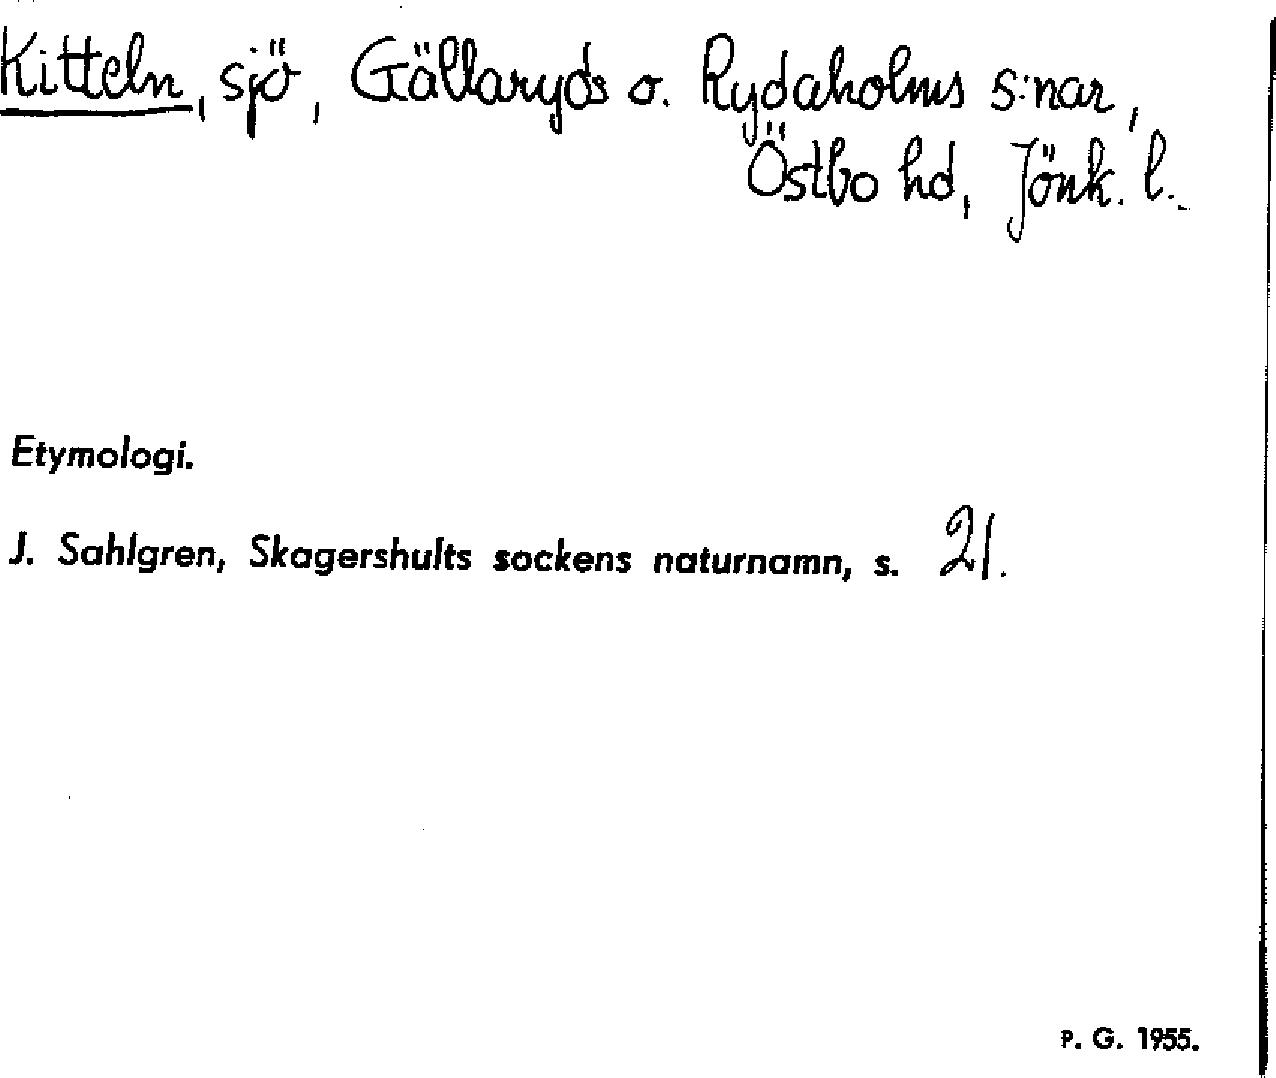 Kitteln, sjö, Gällaryds o. Rydaholms s:nar,
Östbo hd, Jönk. l.
Etymologi.
J. Sahlgren, Skagershults sockens naturnamn, s. 21.
P. G. 1955.